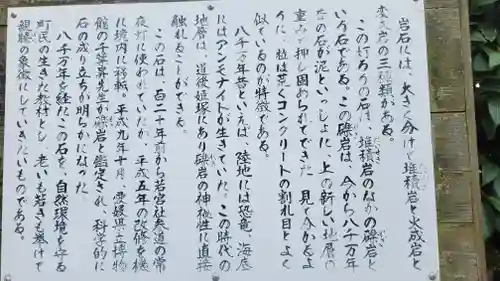 岩石には、大きく分けて堆積岩と火成岩と
変成岩の三種類がある。
この灯ろうの石は、堆積岩のなかの礫岩と
いう石である。この礫岩は、今から八千万年
の石が泥といっしょに、上の新しい地層の
重みで押し固められてできた。見て分かるよ
うに、粒は荒くコンクリートの割れ目とよく
似ているのが特徴である。
八千万年昔といえば、陸地には恐竜、海底
にはアンモナイトが生きていた。この時代の
地層は、道後姫塚にあり礫岩の神秘性に直接
触れることができる。
この石は、百二十年前から若宮社参道の常
夜灯に使われていたが、平成五年の改修を機
に境内に移転、平成九年十月、愛媛県立博物
館の千葉昇先生が礫岩と鑑定され、科学的に
石の成り立ちが明らかになった。
八千万年を経たこの石を、自然環境を守る
町民の生きた教材とし、老いも若きも挙げて
親睦の象徴にしていきたいものである。